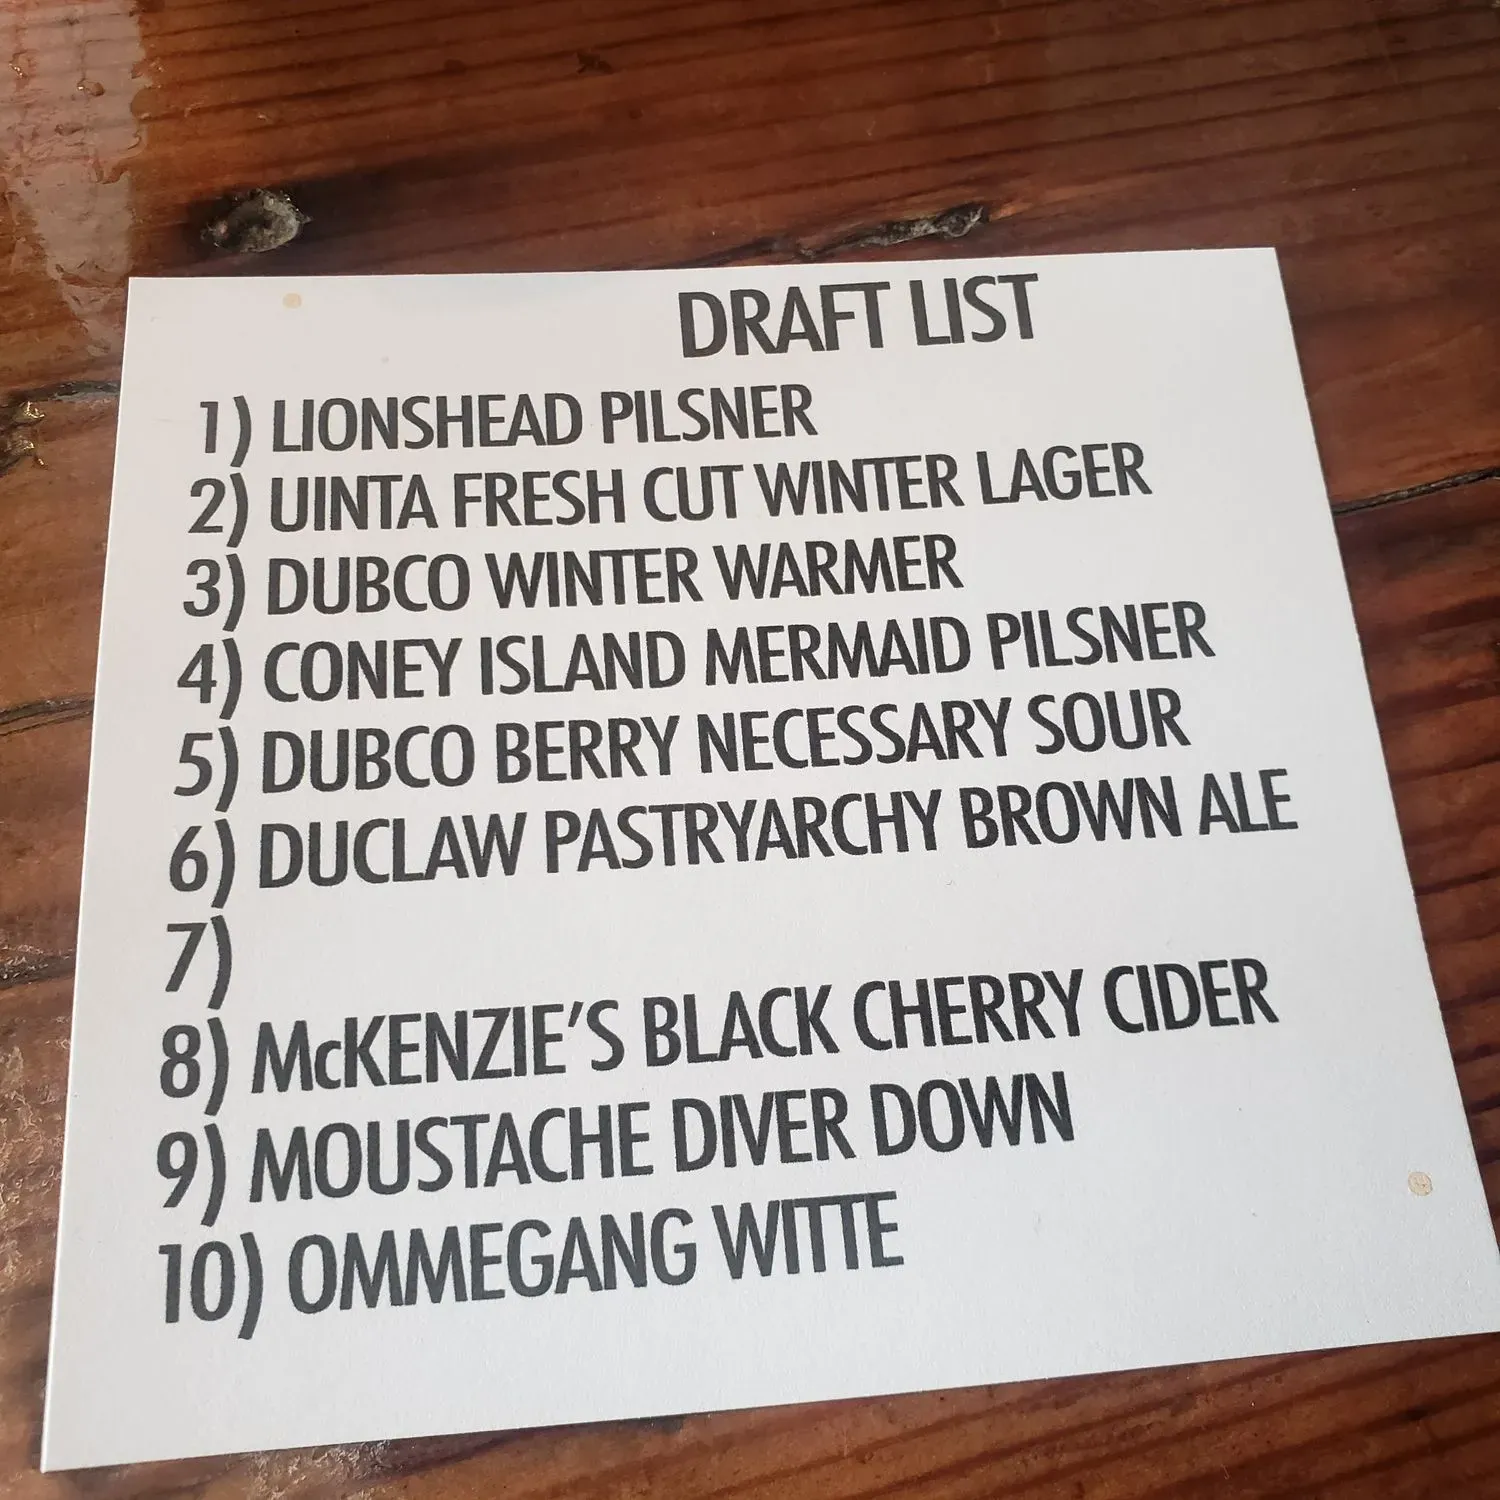 DRAFT LIST
1) LIONSHEAD PILSNER
2) UINTA FRESH CUT WINTER LAGER
3) DUBCO WINTER WARMER
4) CONEY ISLAND MERMAID PILSNER
5) DUBCO BERRY NECESSARY SOUR
6) DUCLAW PASTRYARCHY BROWN ALE
7)
8) McKENZIE'S BLACK CHERRY CIDER
9) MOUSTACHE DIVER DOWN
10) OMMEGANG WITTE